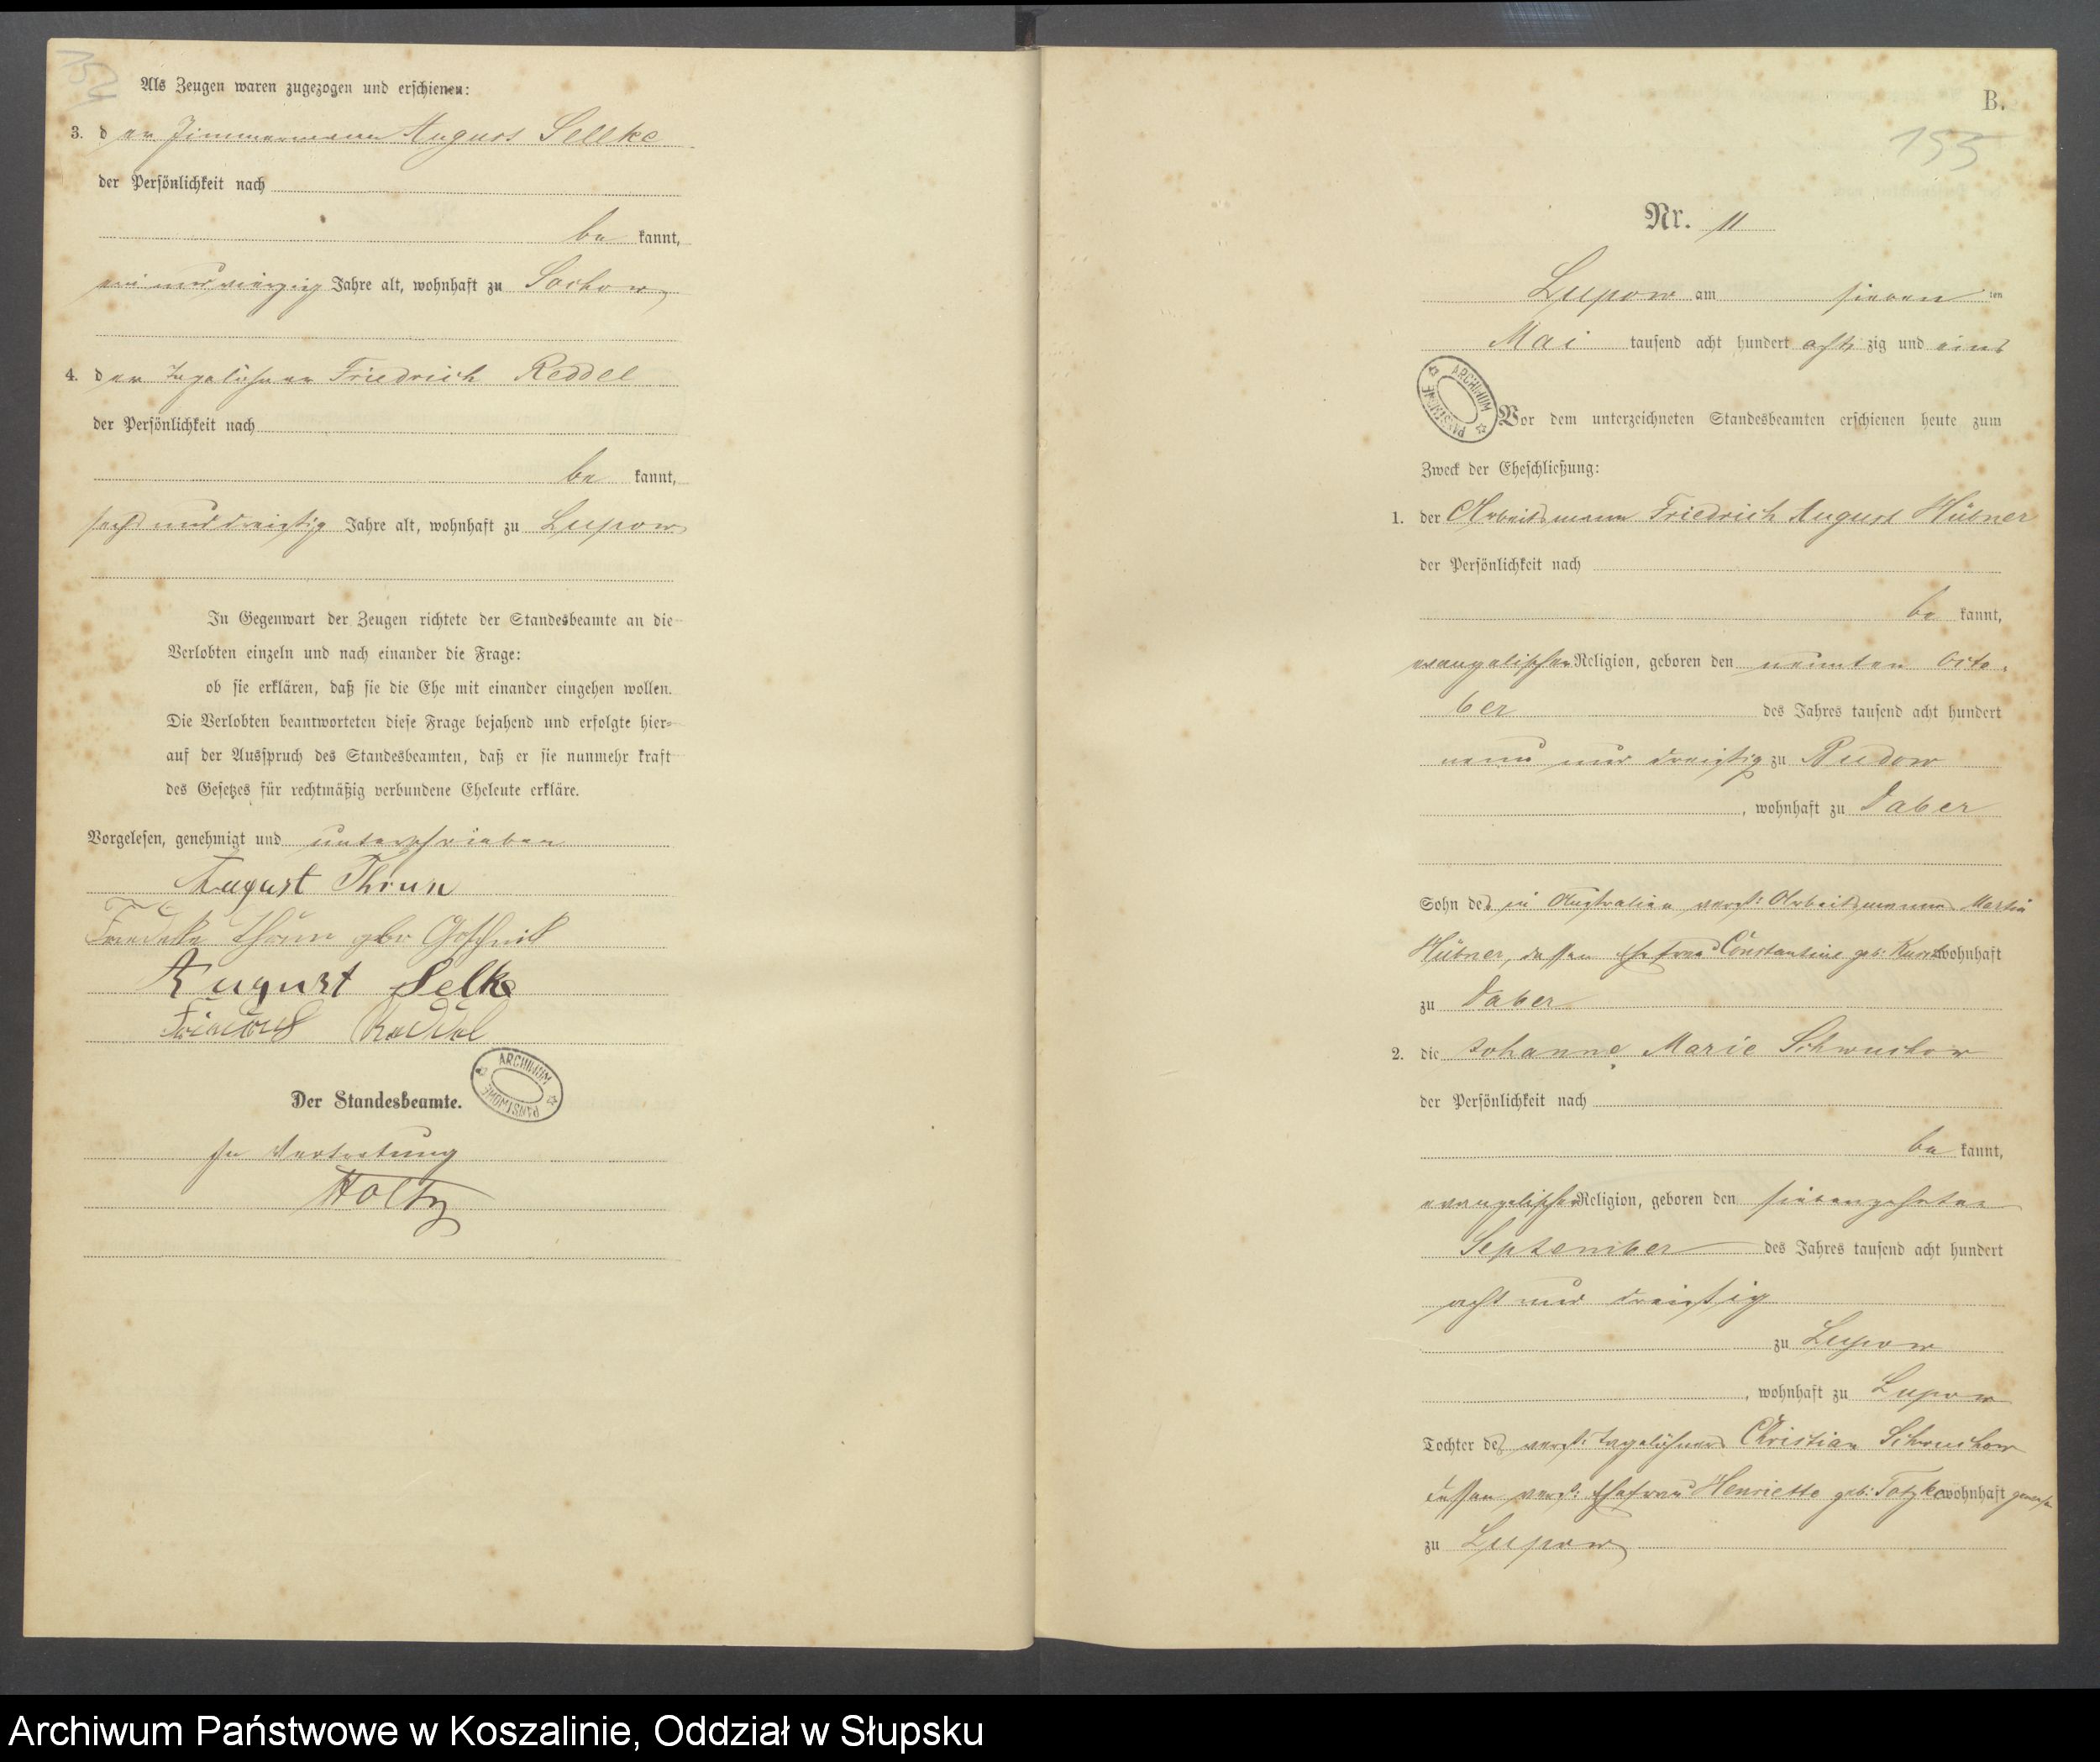 Als Zeugen waren zugezogen und erschienen:
3. der Zimmermann August Sellke
der Persönlichkeit nach
be kannt,
ein und vierzig Jahre alt, wohnhaft zu Sochow
4. der Tagelöhner Friedrich Reddel
der Persönlichkeit nach
be kannt,
sechs und dreißig Jahre alt, wohnhaft zu Lupow
In Gegenwart der Zeugen richtete der Standesbeamte an die
Verlobten einzeln und nach einander die Frage:
ob sie erklären, daß sie die Ehe mit einander eingehen wollen.
Die Verlobten beantworteten diese Frage bejahend und erfolgte hier-
auf der Ausspruch des Standesbeamten, daß er sie nunmehr kraft
des Gesetzes für rechtmäßig verbundene Eheleute erkläre.
Vorgelesen, genehmigt und unterschrieben
August Thrun
Thrun geb.
August Selke
Friedrich Reddel
Der Standesbeamte.
In Vertretung
Holtz
ARCHIWUM PAŃSTWOWE
B.
155
Nr. 11
Lupow am sieben ten
Mai tausend acht hundert acht zig und eins
ARCHIWUM PAŃSTWOWE
Vor dem unterzeichneten Standesbeamten erschienen heute zum
Zweck der Eheschließung:
1. der Arbeitsmann Friedrich August Hübner
der Persönlichkeit nach
be kannt,
evangelischer Religion, geboren den neunten Octo-
ber des Jahres tausend acht hundert
neun und dreißig zu Rudow
, wohnhaft zu Daber
Sohn des in Australien verst: Arbeitsmanns Martin
Hübner, dessen Ehefrau Constantine geb: wohnhaft
zu Daber
2. die Johanne Marie Schwuchow
der Persönlichkeit nach
be kannt,
evangelischer Religion, geboren den siebenzehnten
September des Jahres tausend acht hundert
acht und dreißig
zu Lupow
, wohnhaft zu Lupow
Tochter des verst: Tagelöhners Christian Schwuchow
dessen verst: Ehefrau Henriette geb: Totzke wohnhaft gewesen
zu Lupow
Archiwum Państwowe w Koszalinie, Oddział w Słupsku